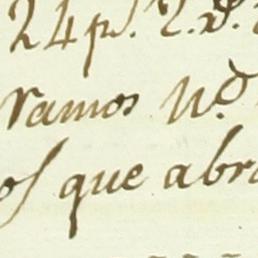 24 p.
ramos N.º
os que abra